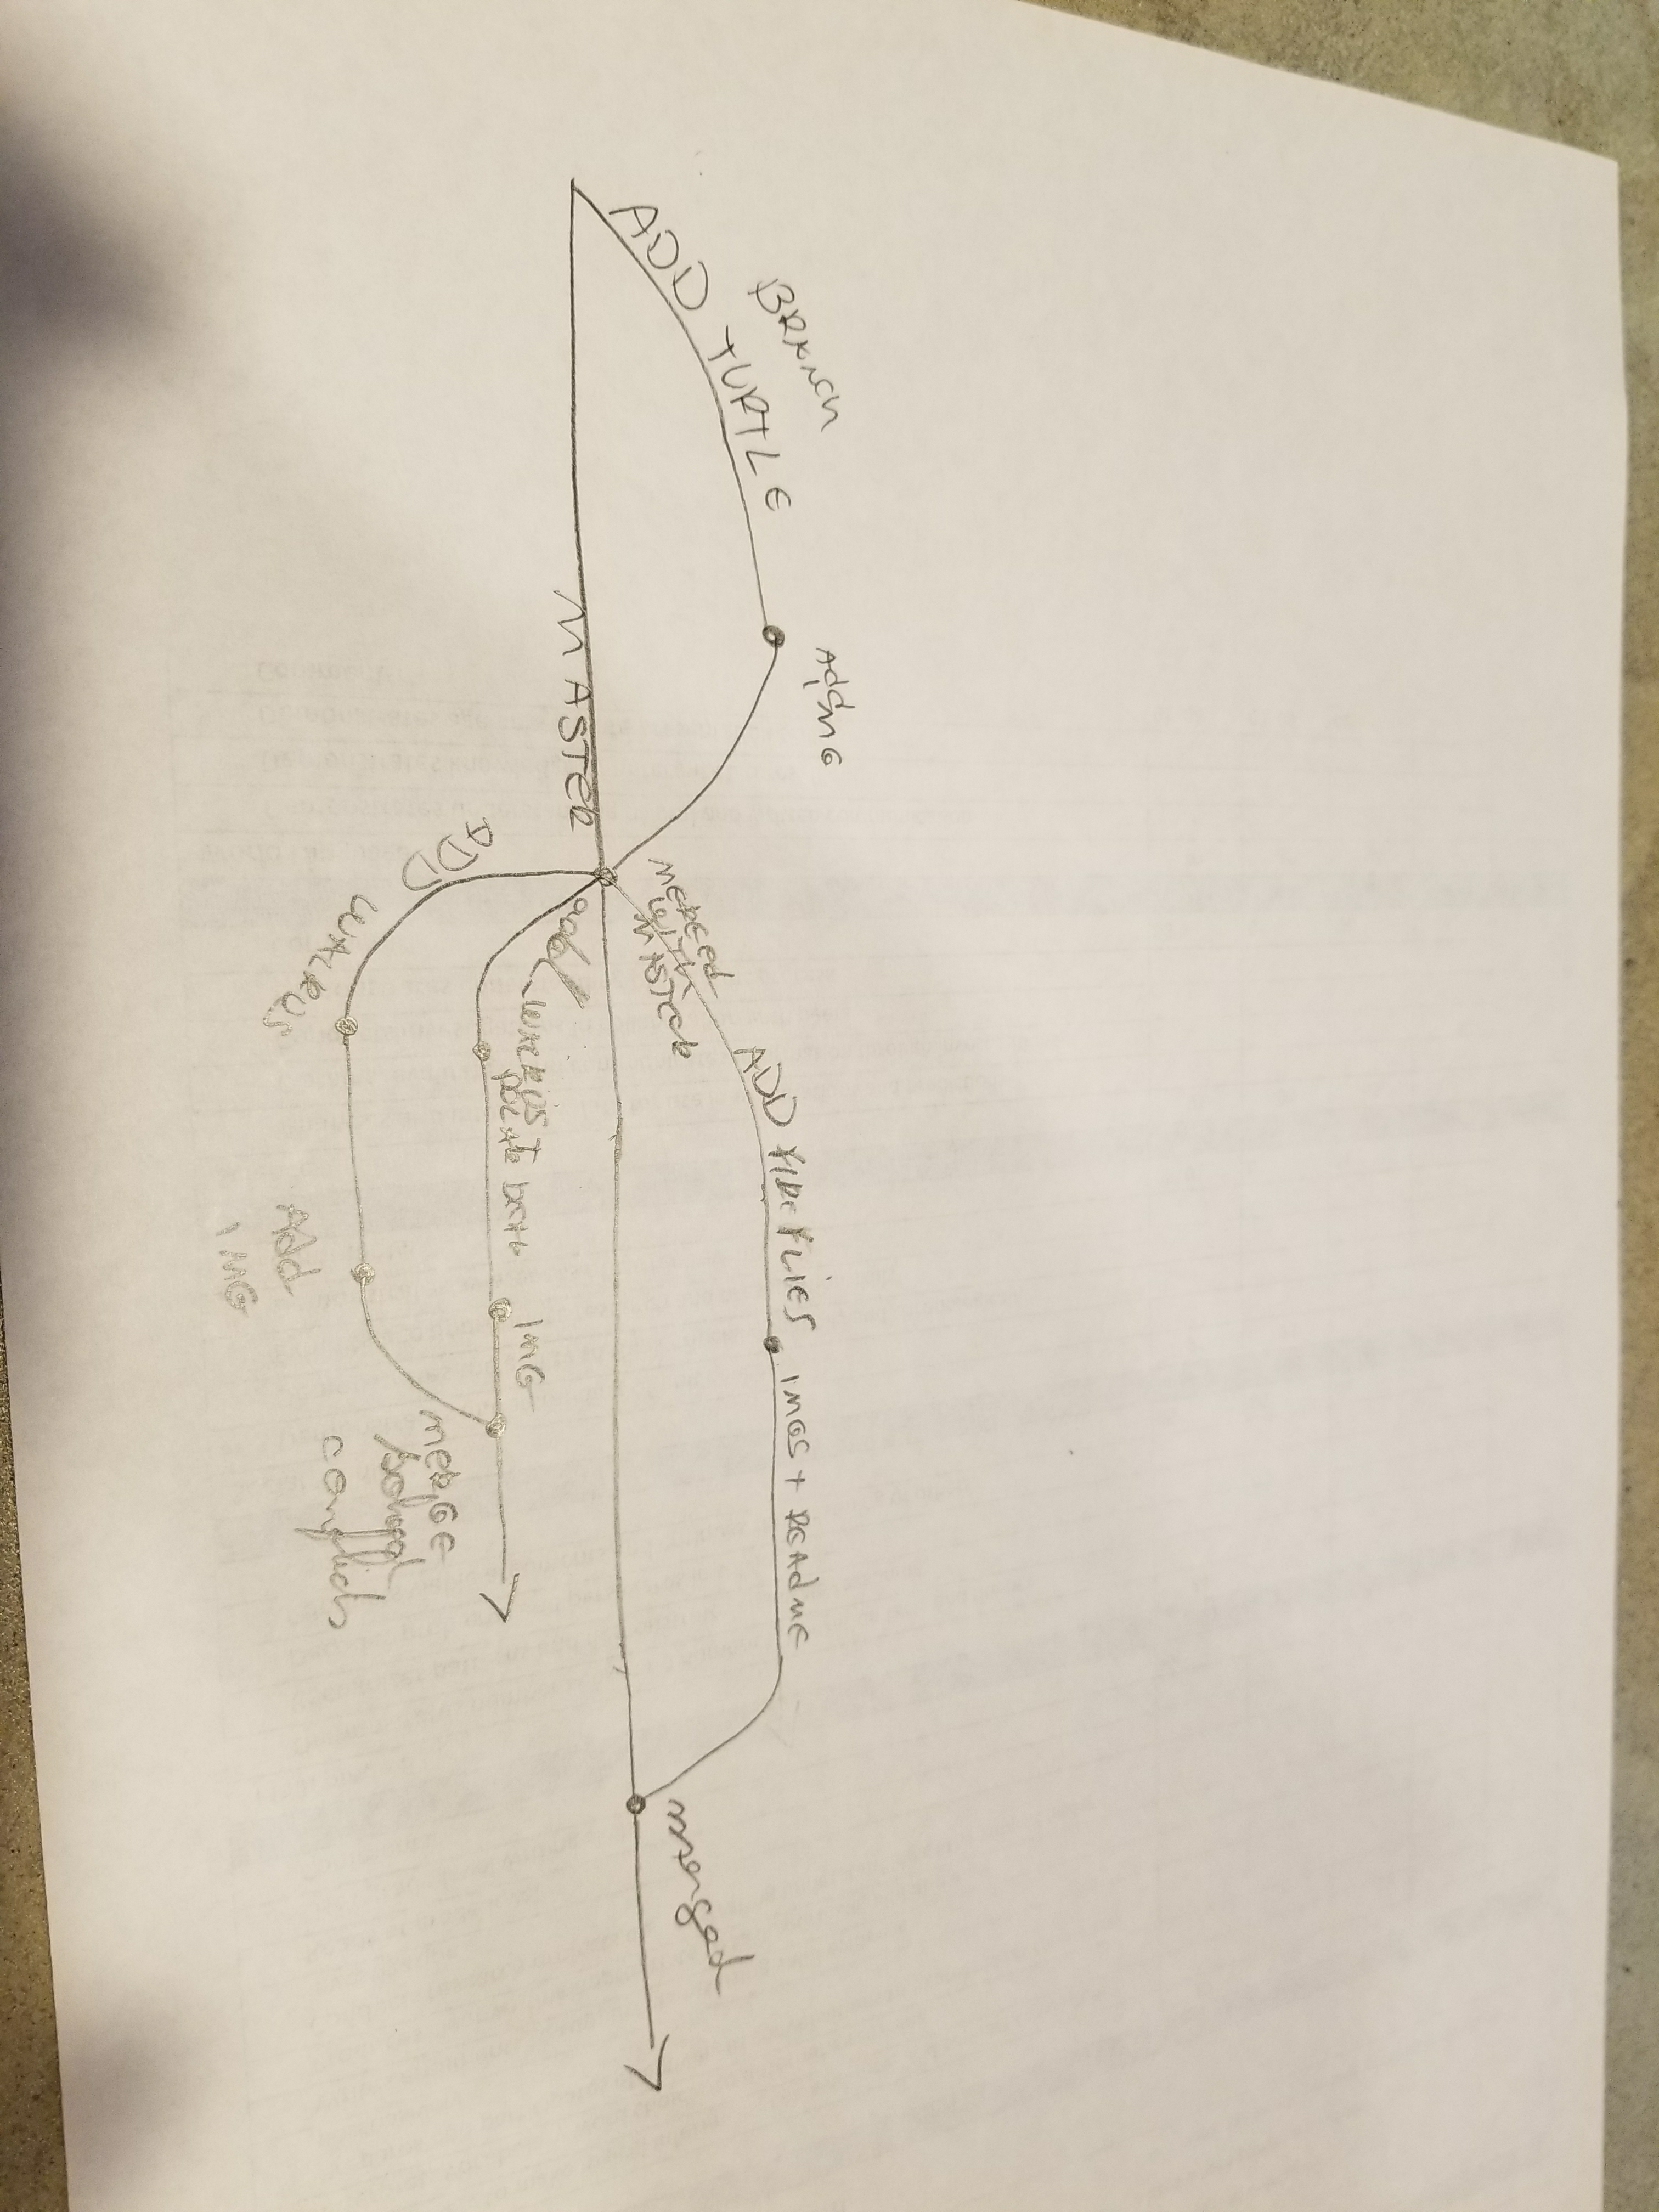 BRANCH
ADD TURTLE
Add
IMG
MASTER
MERGED
WITH
MASTER
ADD FIREFLIES
IMGS + README
merged
add
WALRUS
POLAR BEAR
IMG
ADD
WALRUS
Add
IMG
MERGE
solved
conflicts